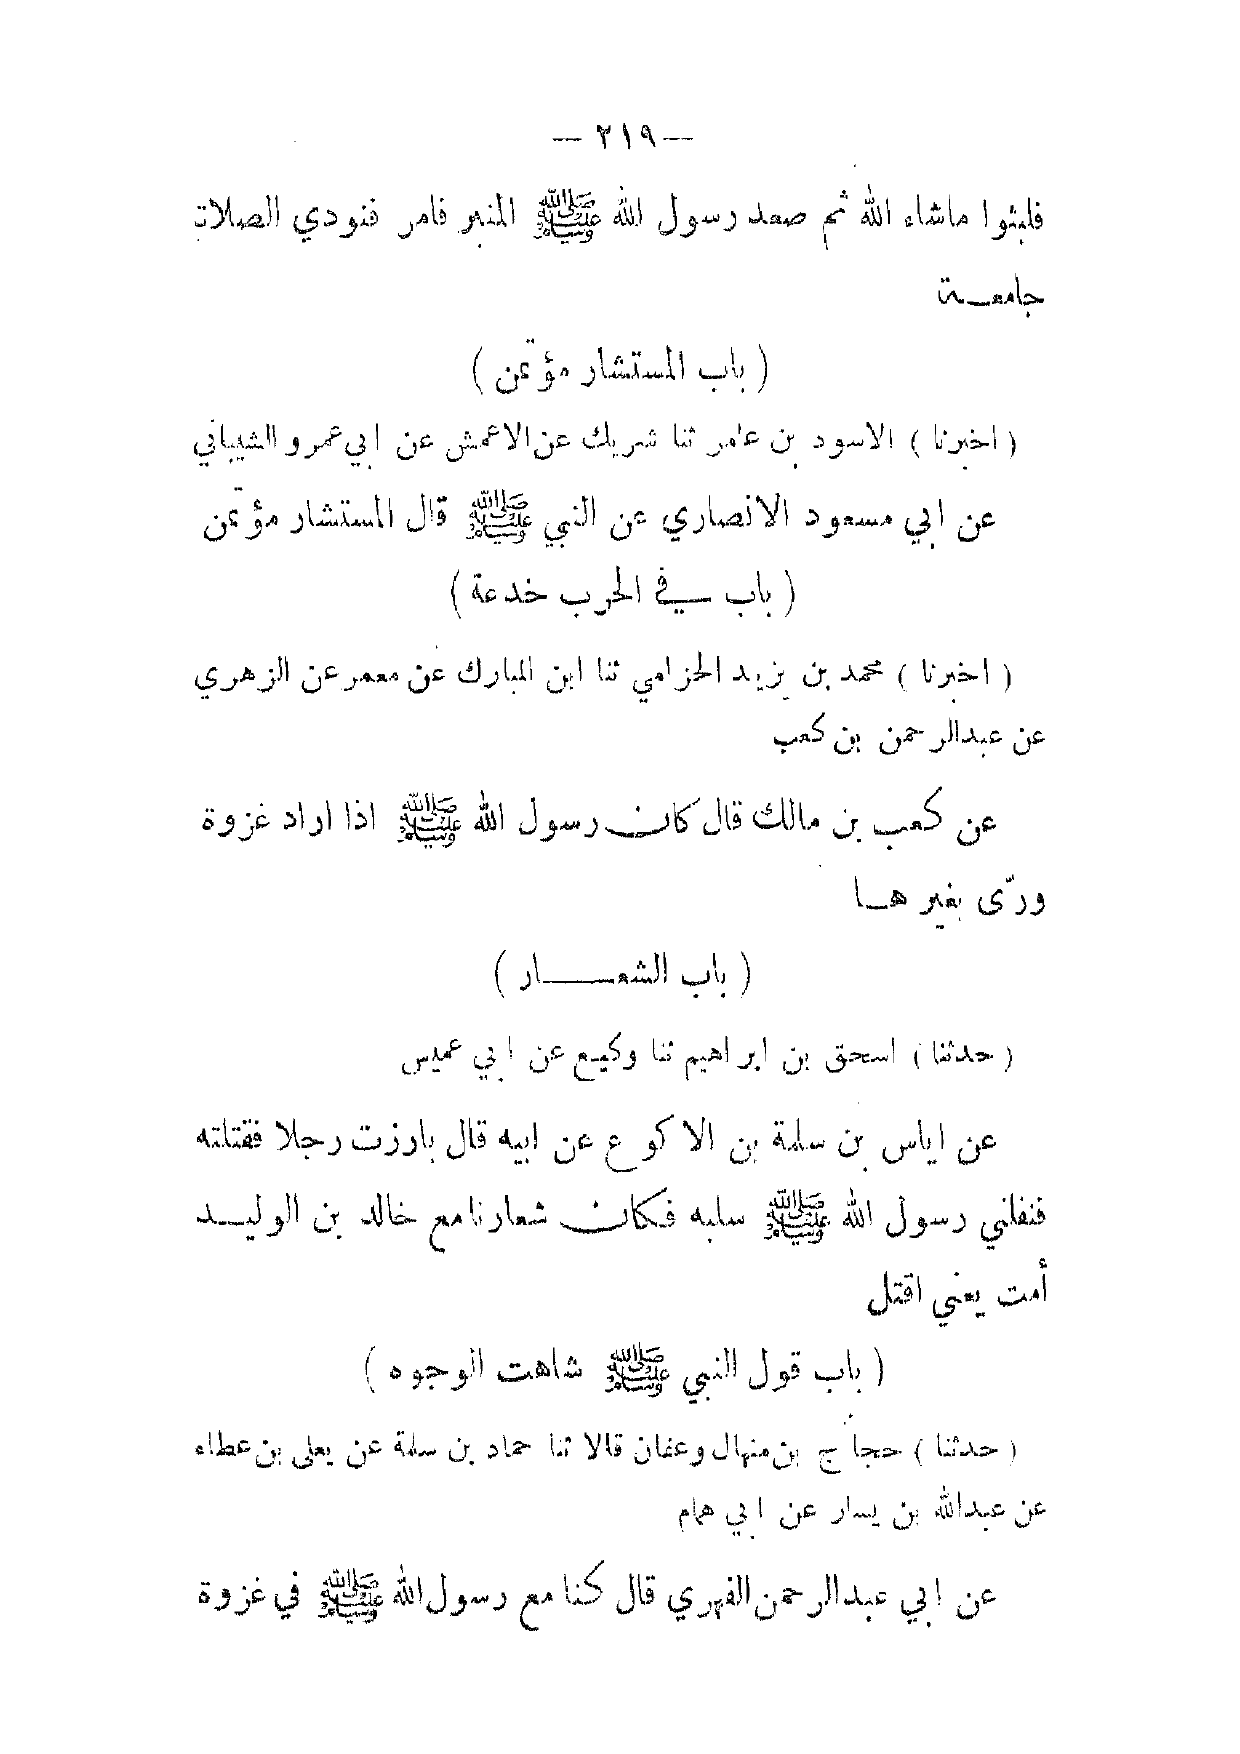 — ٢١٩ —
فلبثوا ماشاء الله ثم صعد رسول الله ﷺ المنبر فامر فنودي الصلات
جامعــة
( باب المستشار مؤتمن )
( اخبرنا ) الاسود بن عامر ثنا شريك عن الاعمش عن ابي عمرو الشيباني
عن ابي مسعود الانصاري عن النبي ﷺ قال المستشار مؤتمن
( باب ــفي الحرب خدعة )
( اخبرنا ) محمد بن يزيد الحزامي ثنا ابن المبارك عن معمر عن الزهري
عن عبدالرحمن بن كعب
عن كعب بن مالك قال كان رسول الله ﷺ اذا اراد غزوة
ورّى بغيرهــا
( باب الشعـــار )
( حدثنا ) اسحق بن ابراهيم ثنا وكيع عن ابي عميس
عن اياس بن سلمة بن الاكوع عن ابيه قال بارزت رجلا فقتلته
فنفلني رسول الله ﷺ سلبه فكان شعارنا مع خالد بن الوليــد
أمت يعني اقتل
( باب قول النبي ﷺ شاهت الوجوه )
( حدثنا ) حجاج بن منهال وعفان قالا ثنا حماد بن سلمة عن يعلى بن عطاء
عن عبدالله بن يسار عن ابي همام
عن ابي عبدالرحمن الفهري قال كنا مع رسول الله ﷺ في غزوة